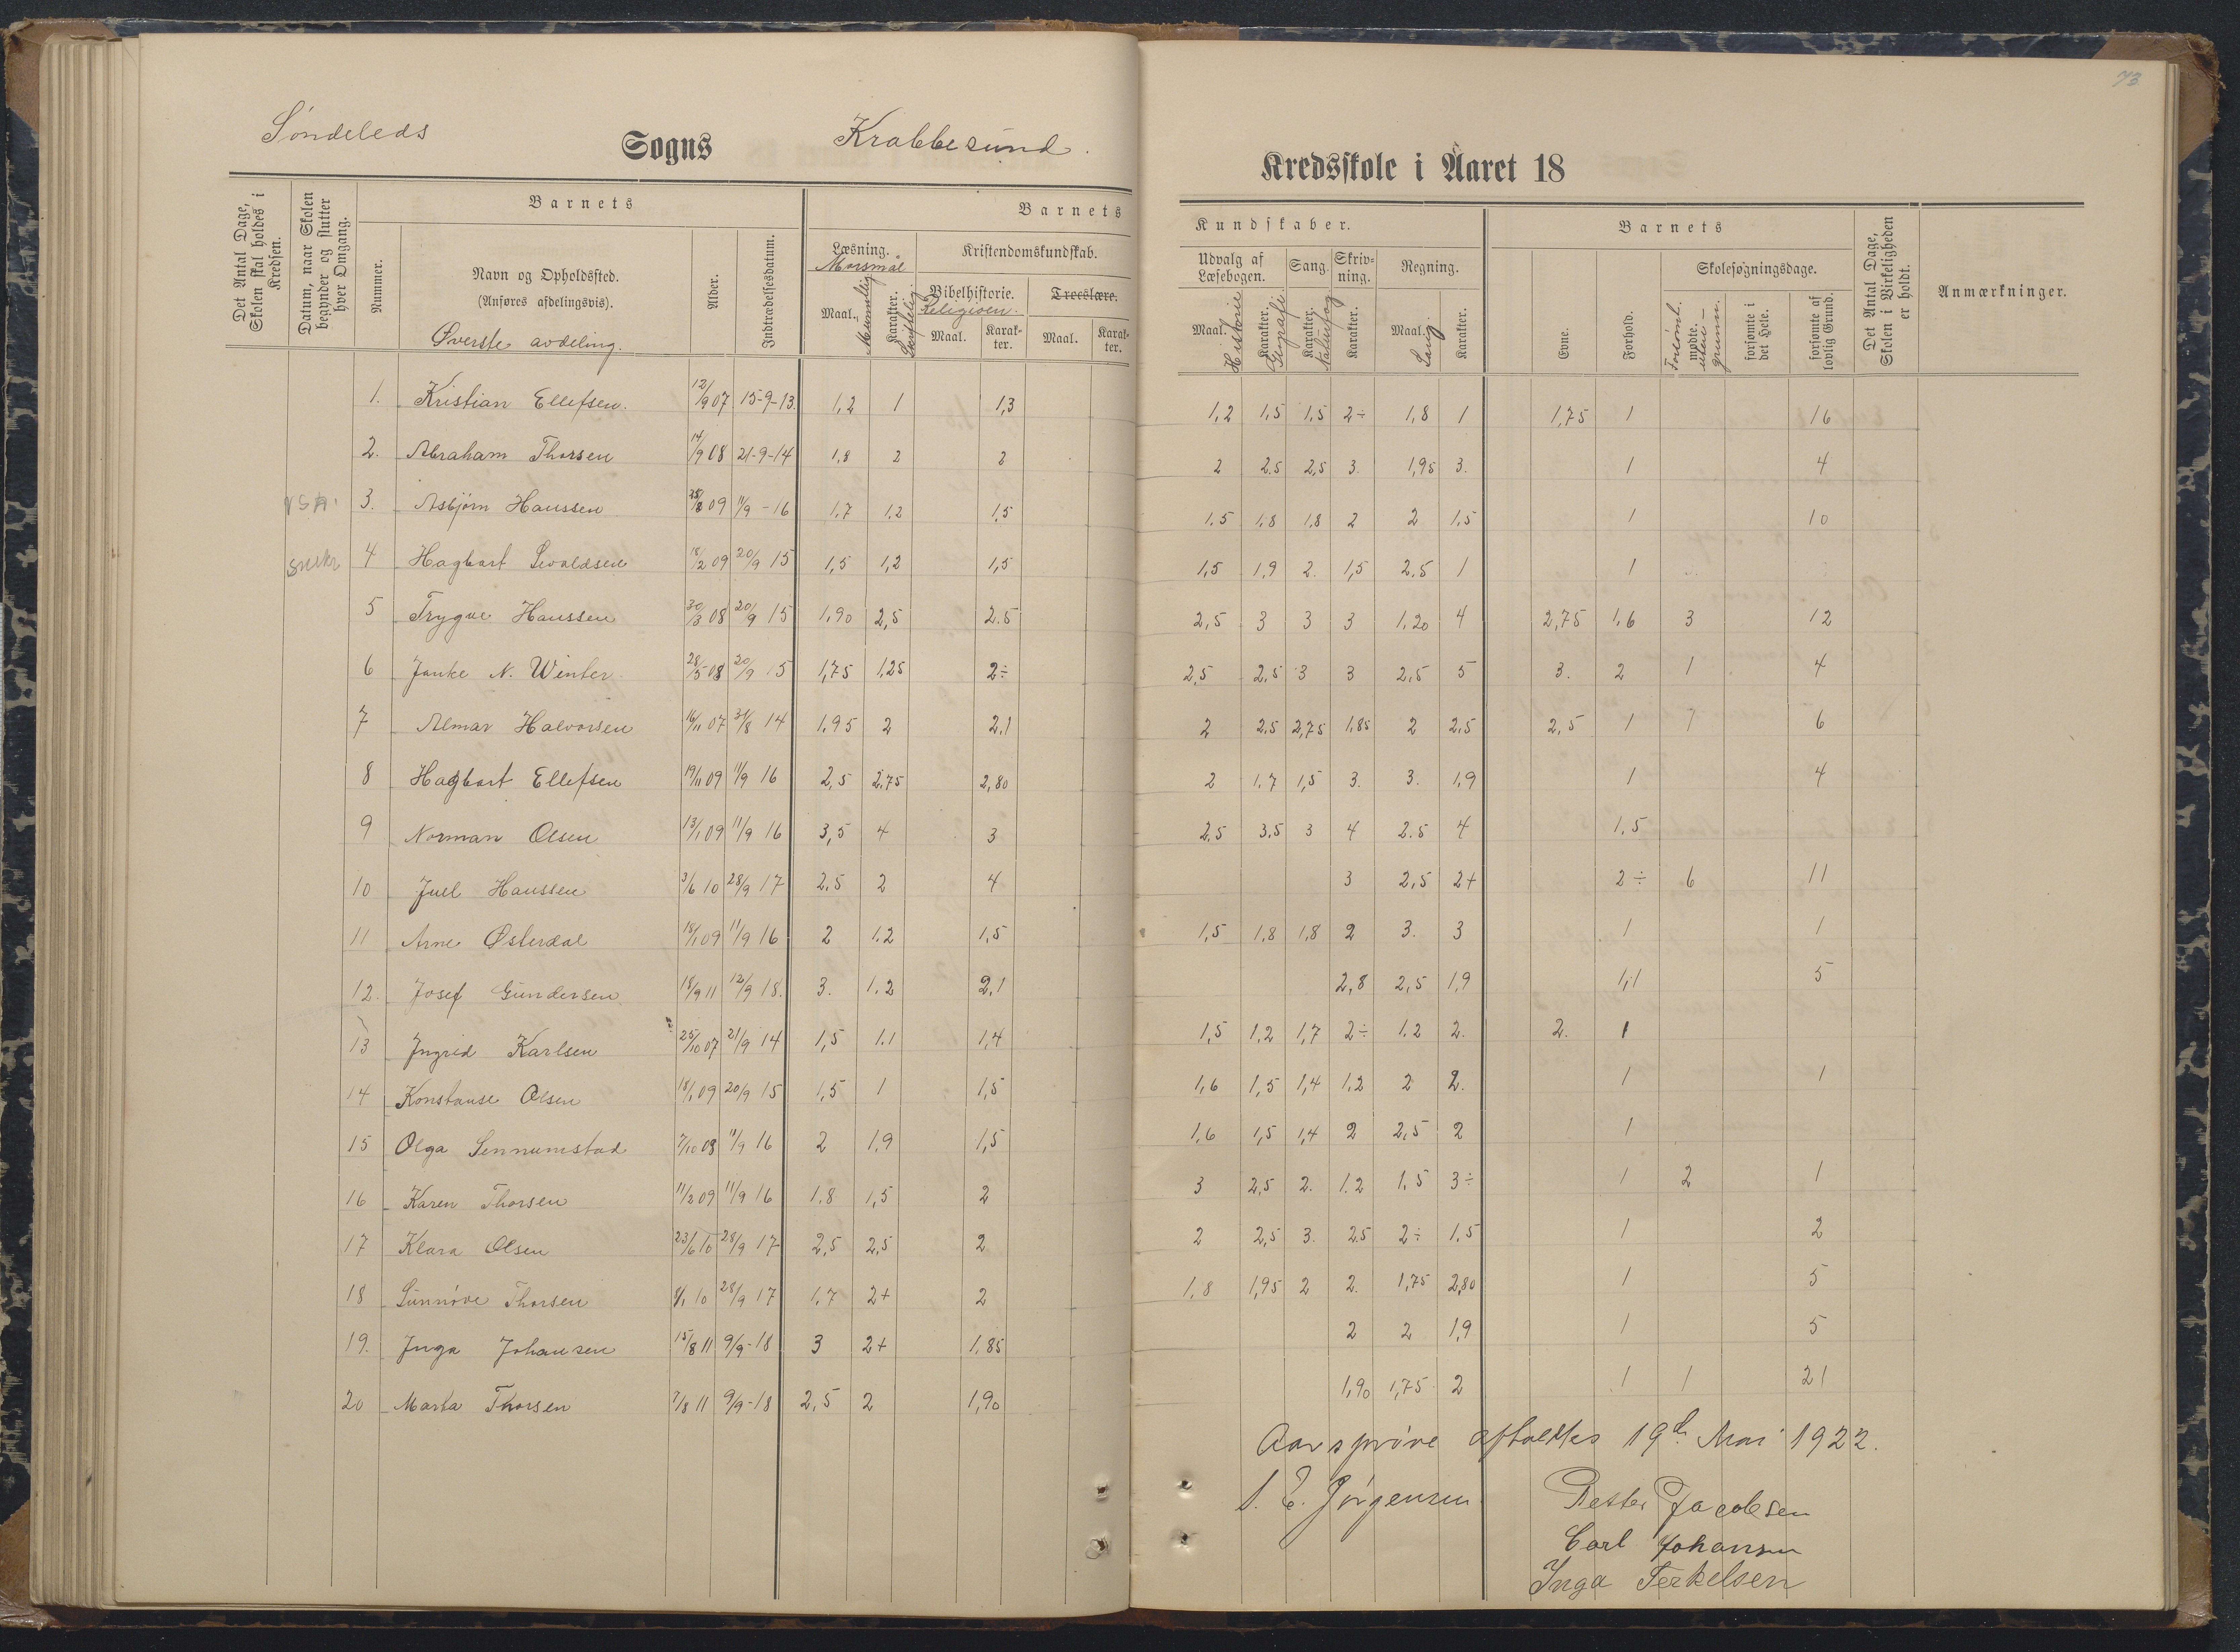 73
Søndeleds Sogns Krabbesund.
Kredsskole i Aaret 18
Det Antal Dage, Skolen skal holdes i Kredsen.
Datum, naar Skolen begynder og slutter hver Omgang.
Nummer.
Barnets
Navn og Opholdssted.
(Anføres afdelingsvis).
Øverste avdeling.
Alder.
Indtrædelsesdatum.
Barnets
Læsning.
Morsmål
Maal.
Mundtlig
Karakter.
Skriftlig
Kristendomskundskab.
Bibelhistorie.
Religion.
Maal.
Karakter.
Troeslære.
Maal.
Karakter.
Kundskaber.
Udvalg af Læsebogen.
Maal.
Historie
Karakter.
Geografi
Sang.
Karakter.
Naturfag
Skrivning.
Karakter.
Regning.
Maal.
Sang
Karakter.
Barnets
Evne.
Forhold.
Skolesøgningsdage.
Forsømt.
mødte.
uten grunn.
forsømte i det Hele.
forsømte af lovlig Grund.
Det Antal Dage, Skolen i Virkeligheden er holdt.
Anmærkninger.
1. Kristian Ellefsen. 12/9 07 15-9-13. 1,2 1 1,3 1,2 1,5 1,5 2÷ 1,8 1 1,75 1 16
2. Abraham Thorsen 14/9 08 21-9-14 1,8 2 2 2 2.5 2,5 3. 1,95 3. 1 4
3. Asbjørn Hanssen 09 11/9 -16 1,7 1,2 1,5 1,5 1,8 1,8 2 2 1,5 1 10
4 Hagbart Sivaldsen 18/2 09 20/9 15 1,5 1,2 1,5 1,5 1,9 2. 1,5 2.5 1 1
5 Trygve Hanssen 30/3 08 20/9 15 1,90 2,5 2.5 2,5 3 3 3 1,20 4 2,75 1,6 3 12
6 Janke N. Winter 28/5 08 20/9 15 1,75 1,25 2÷ 2,5 2,5 3 3 2,5 5 3. 2 1 4
7 Almar Halvorsen 16/11 07 31/8 14 1,95 2 2,1 2 2,5 2,75 1,85 2 2,5 2,5 1 7 6
8 Hagbart Ellefsen 19/11 09 11/9 16 2,5 2,75 2,80 2 1,7 1,5 3. 3. 1,9 1 4
9 Norman Olsen 13/1 09 11/9 16 3,5 4 3 2,5 3,5 3 4 2.5 4 1,5
10 Juel Hanssen 3/6 10 28/9 17 2.5 2 4 3 2,5 2+ 2÷ 6 11
11 Arne Østerdal 18/1 09 11/9 16 2 1.2 1,5 1,5 1,8 1,8 2 3. 3 1 1
12. Josef Gundersen 18/9 11 12/9 18. 3. 1.2 2,1 2,8 2,5 1,9 1,1 5
13 Ingrid Karlsen 25/10 07 21/9 14 1,5 1.1 1,4 1,5 1,2 1,7 2÷ 1.2 2. 2. 1
14 Konstanse Olsen 18/1 09 20/9 15 1,5 1 1,5 1,6 1,5 1,4 1,2 2 2. 1 1
15 Olga Sennumstad 7/10 08 11/9 16 2 1,9 1,5 1,6 1,5 1,4 2 2,5 2 1
16 Karen Thorsen 11/2 09 11/9 16 1.8 1,5 2 3 2,5 2. 1.2 1.5 3÷ 1 2 1
17 Klara Olsen 23/6 10 28/9 17 2,5 2,5 2 2 2,5 3. 2.5 2÷ 1.5 1 2
18 Sunnøve Thorsen 8/1 10 28/9 17 1.7 2+ 2 1,8 1,95 2 2. 1,75 2,80 1 5
19. Inga Johansen 15/8 11 9/9-18 3 2+ 1,85 2 2 1,9 1 5
20 Marta Thorsen 7/8 11 9/9-18 2,5 2 1,90 1,90 1,75 2 1 1 21
Aarsprøve afholdtes 19de Mai 1922.
S. E. Jørgensen Peder Jacobsen
Carl Johansen
Inga Terkelsen